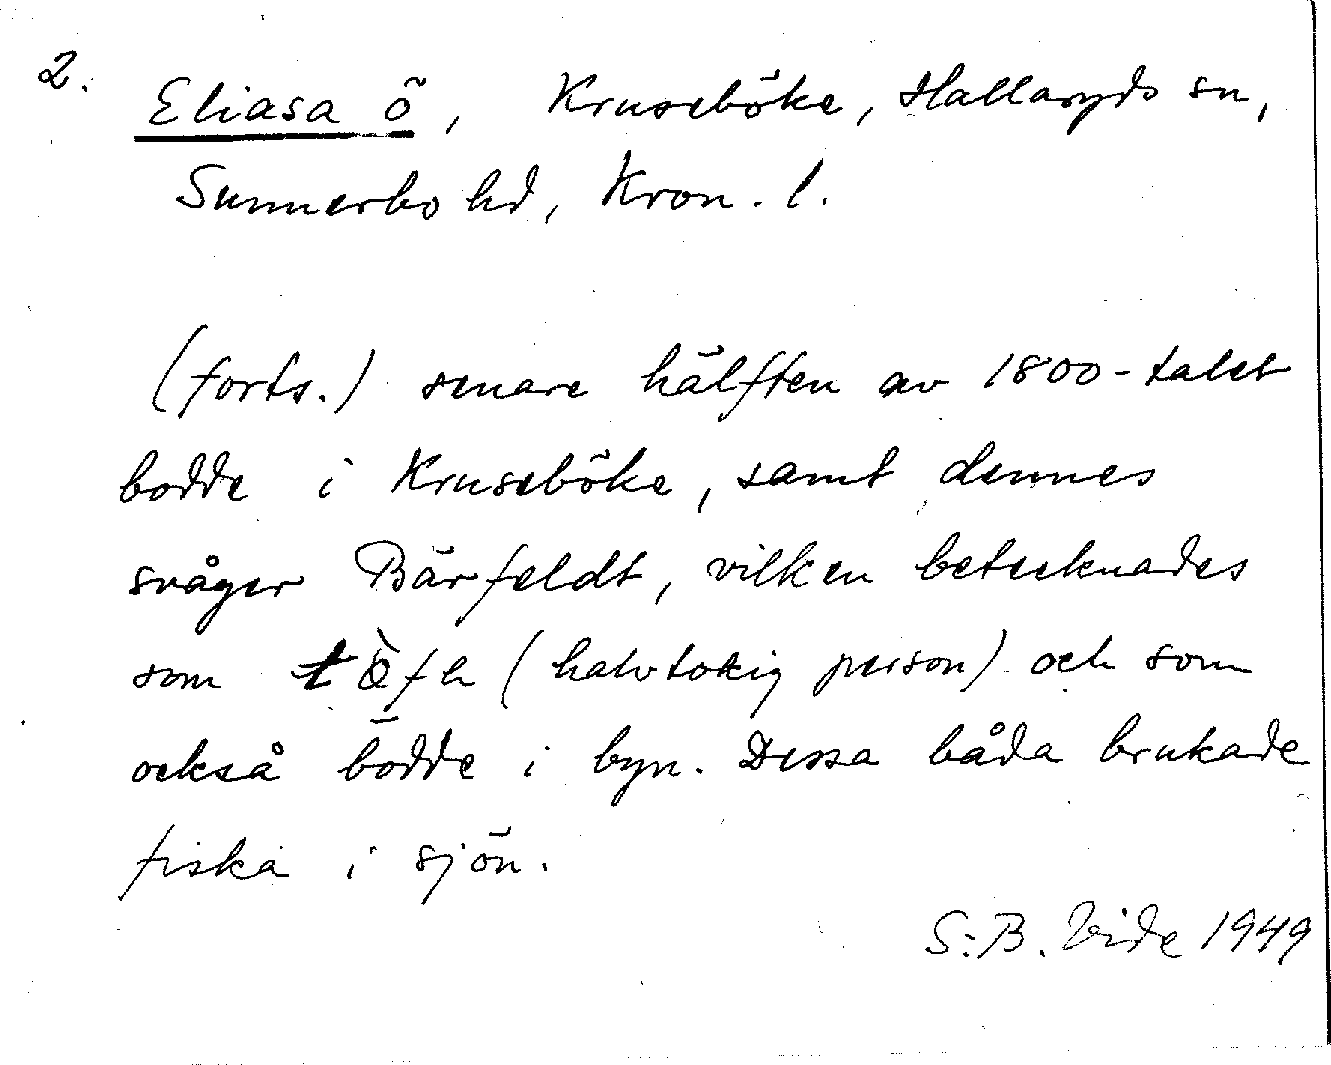 2.
Eliasa ö, Kruseböke, Hallaryds sn,
Sunnerbo hd, Kron. l.
(forts.) senare hälften av 1800-talet
bodde i Kruseböke, samt dennes
svåger Bärfeldt, vilken betecknades
som (halvtokig person) och som
också bodde i byn. Dessa båda brukade
fiska i sjön.
S. B. Vide 1949